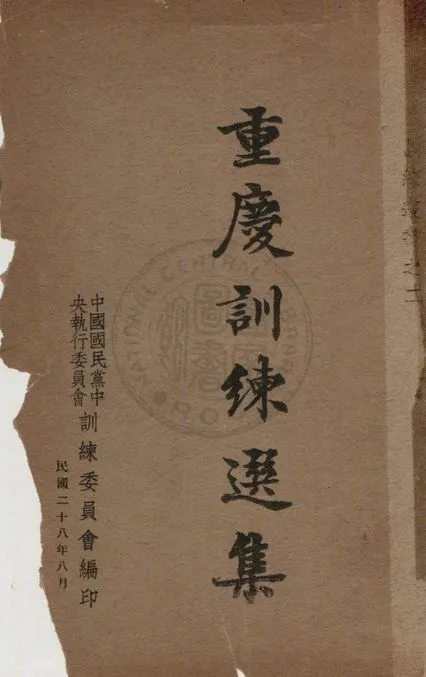 重慶訓練選集
中國國民黨中
央執行委員會
訓練委員會編印
民國二十八年八月
NATIONAL CENTRAL